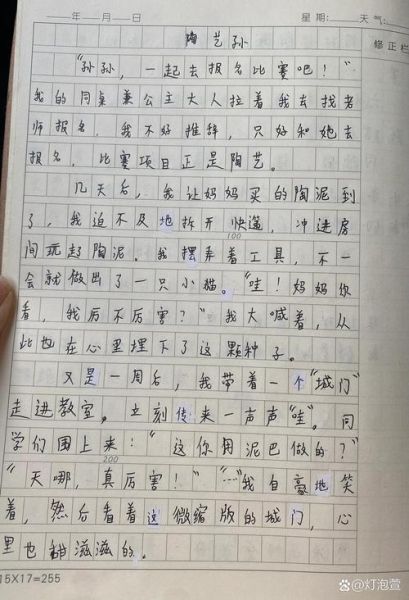 ——年—月—日
星期:____天气:
修正栏
陶艺孙
“孙孙，一起去报名比赛吧！”
我的同桌兼公主大人拉着我去找老
师报名，我不好推辞，只好和她去
报名，比赛项目正是陶艺。
几天后，我让妈妈买的陶泥到
了，我迫不及地拆开快递，冲进房
100
间玩起陶泥。我摆弄着工具，不一
会就做出了一只小猫。“哇！妈妈你
看，我厉不厉害？”我大喊着，从
此也在心里埋下了这颗种子。
又是一周后，我带着一个“城门”
走进教室。立刻传来一声声“哇”。同
学们围上来：“这你用泥巴做的？”
200
“天哪，真厉害！”“…”我自豪地笑
着，然后看着这微缩版的城门，心
里也甜滋滋的。
15X17=255
百家号@灯泡萱